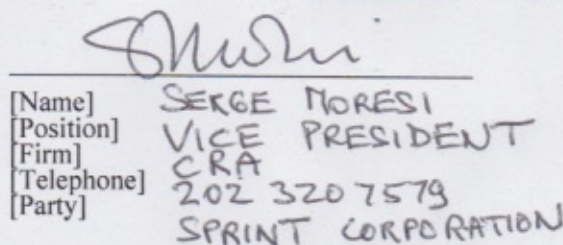 [Name] SERGE MORESI
[Position] VICE PRESIDENT
[Firm] CRA
[Telephone] 202 320 7579
[Party] SPRINT CORPORATION